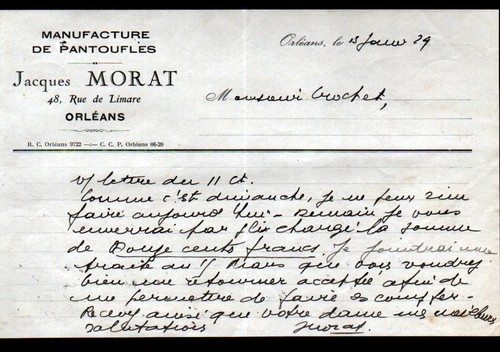 MANUFACTURE
DE PANTOUFLES
Jacques MORAT
48, Rue de Limare
ORLÉANS
R. C. Orléans 9722 — C. C. P. Orléans 66-20
Orléans, le 13 Janv 29
Monsieur Crochet,
v/ lettre du 11 Ct.
Comme c'est dimanche, je ne peux rien
faire aujourd'hui - Demain je vous
enverrai par pli chargé la somme
de Douze cents francs Je joindrai une
traite au 15 Mars que vous voudrez
bien me retourner acceptée afin de
me permettre de faire escompter -
Recevez ainsi que votre dame mes meilleures
salutations
Morat